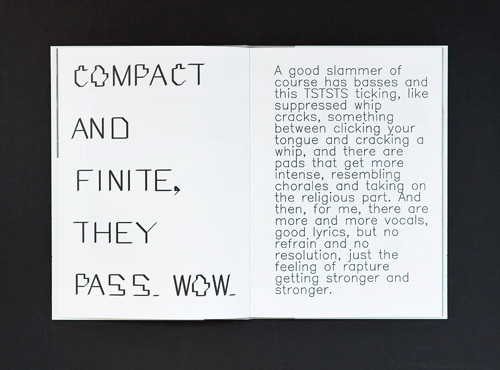 COMPACT
AND
FINITE,
THEY
PASS_ WOW_
A good slammer of
course has basses and
this TSTSTS ticking, like
suppressed whip
cracks, something
between clicking your
tongue and cracking a
whip, and there are
pads that get more
intense, resembling
chorales and taking on
the religious part. And
then, for me, there are
more and more vocals,
good lyrics, but no
refrain and no
resolution, just the
feeling of rapture
getting stronger and
stronger.